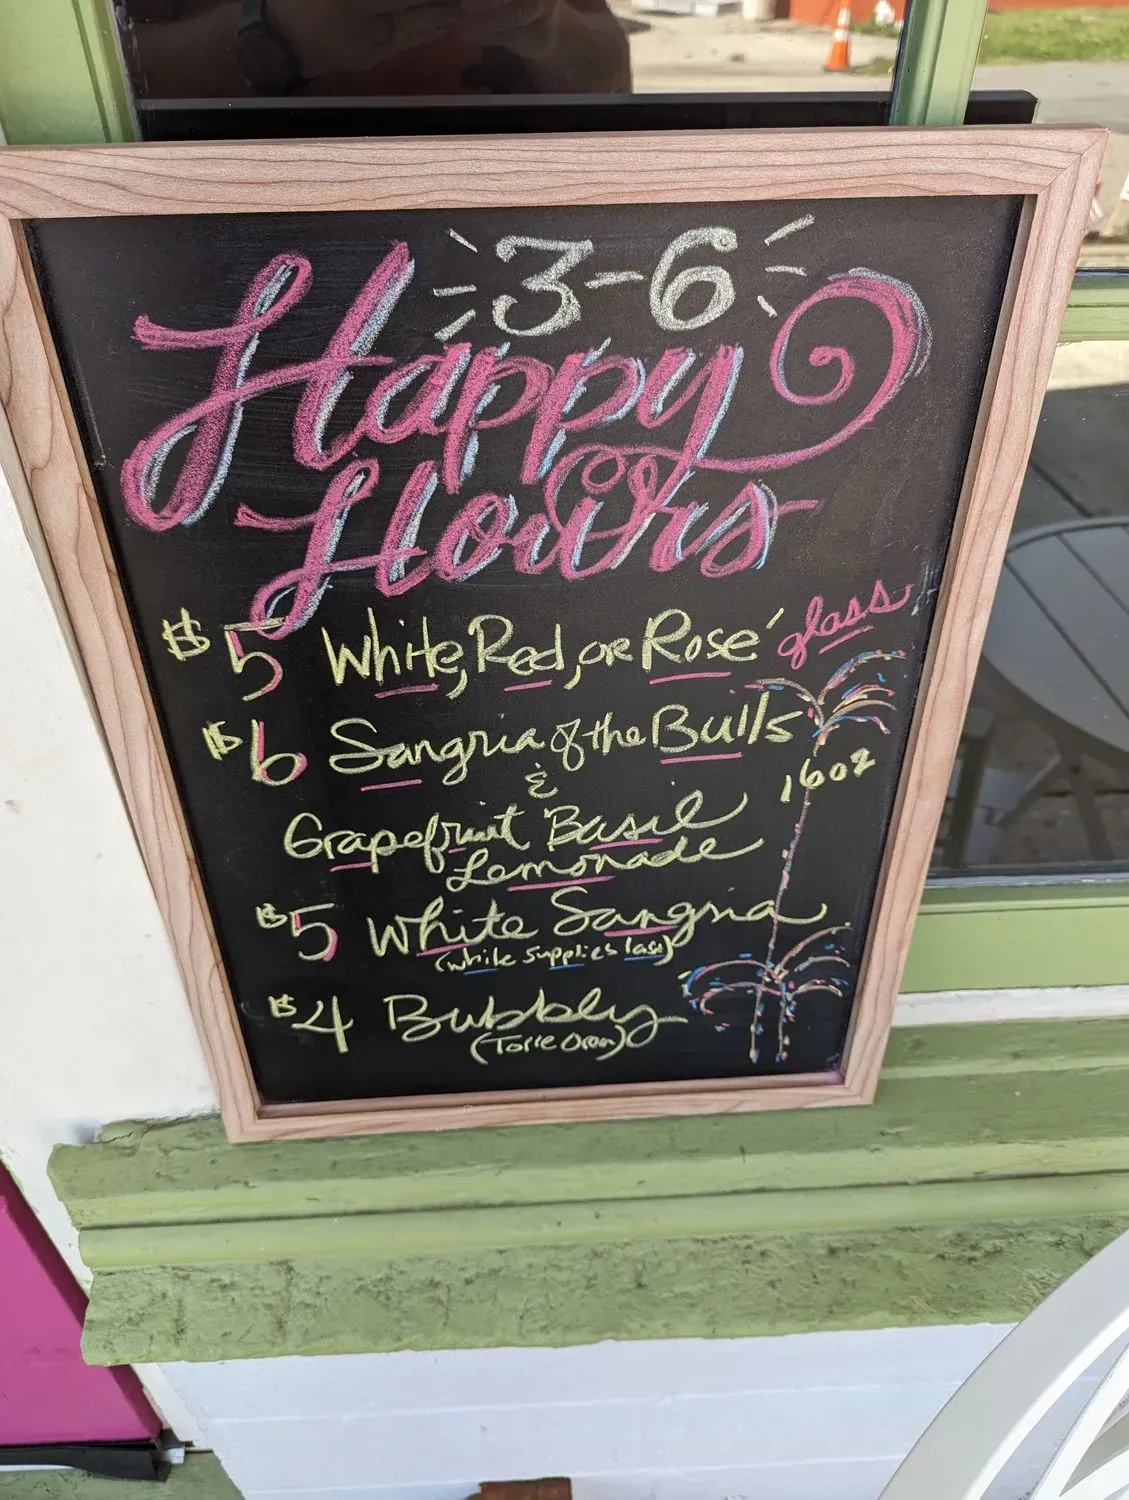 3-6
Happy
Hours
$5 White, Red, or Rosé glass
$6 Sangria of the Bulls
&
16oz
Grapefruit Basil
Lemonade
$5 White Sangria
(while supplies last)
$4 Bubbly
(Torre Oria)